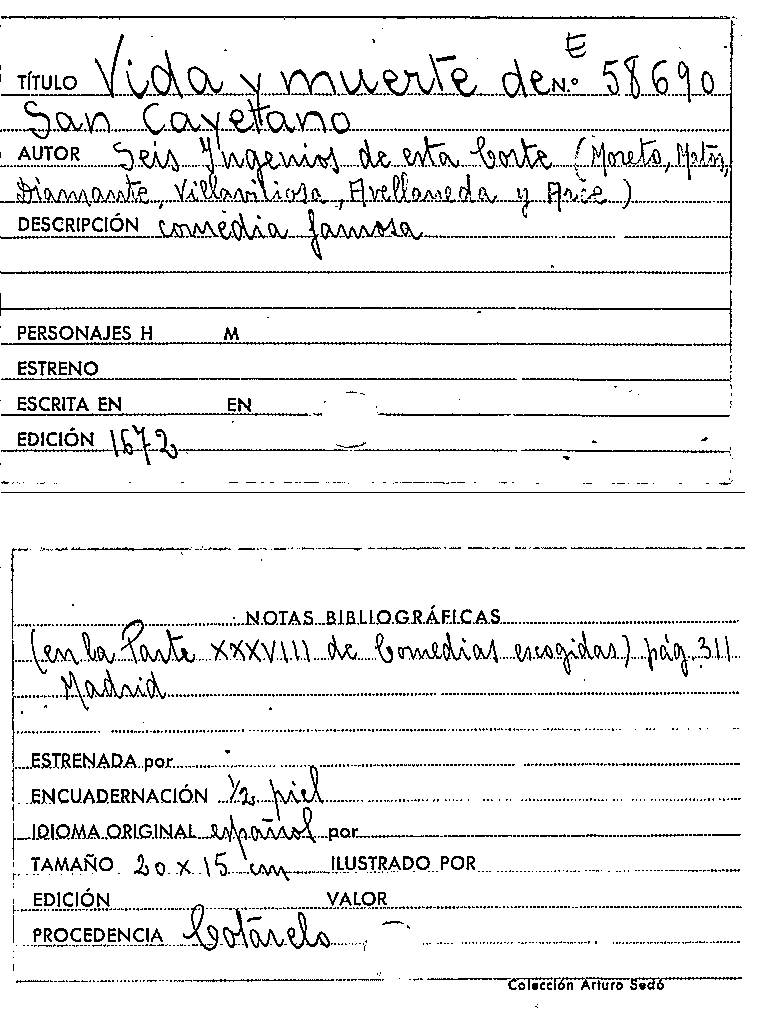 E
TÍTULO Vida y muerte de N.º 58690
San Cayetano
AUTOR Seis Yngenios de esta Corte (Moreto, Matos,
Diamante, Villaviciosa, Avellaneda y Arce)
DESCRIPCIÓN comedia famosa
PERSONAJES H M
ESTRENO
ESCRITA EN EN
EDICIÓN 1672
NOTAS BIBLIOGRÁFICAS
(en la Parte XXXVIII de Comedias escogidas) pág. 311
Madrid
ESTRENADA por
ENCUADERNACIÓN ½ piel
IDIOMA ORIGINAL español por
TAMAÑO 20 x 15 cm ILUSTRADO POR
EDICIÓN VALOR
PROCEDENCIA Cotarelo
Colección Arturo Sedó